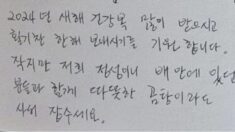 2024년 새해 건강복 많이 받으시고
활기찬 한해 보내시기를 기원합니다.
작지만 저희 정성이니 배 안에 있는
분들과 함께 따뜻한 곰탕이라도
사서 잡수세요.